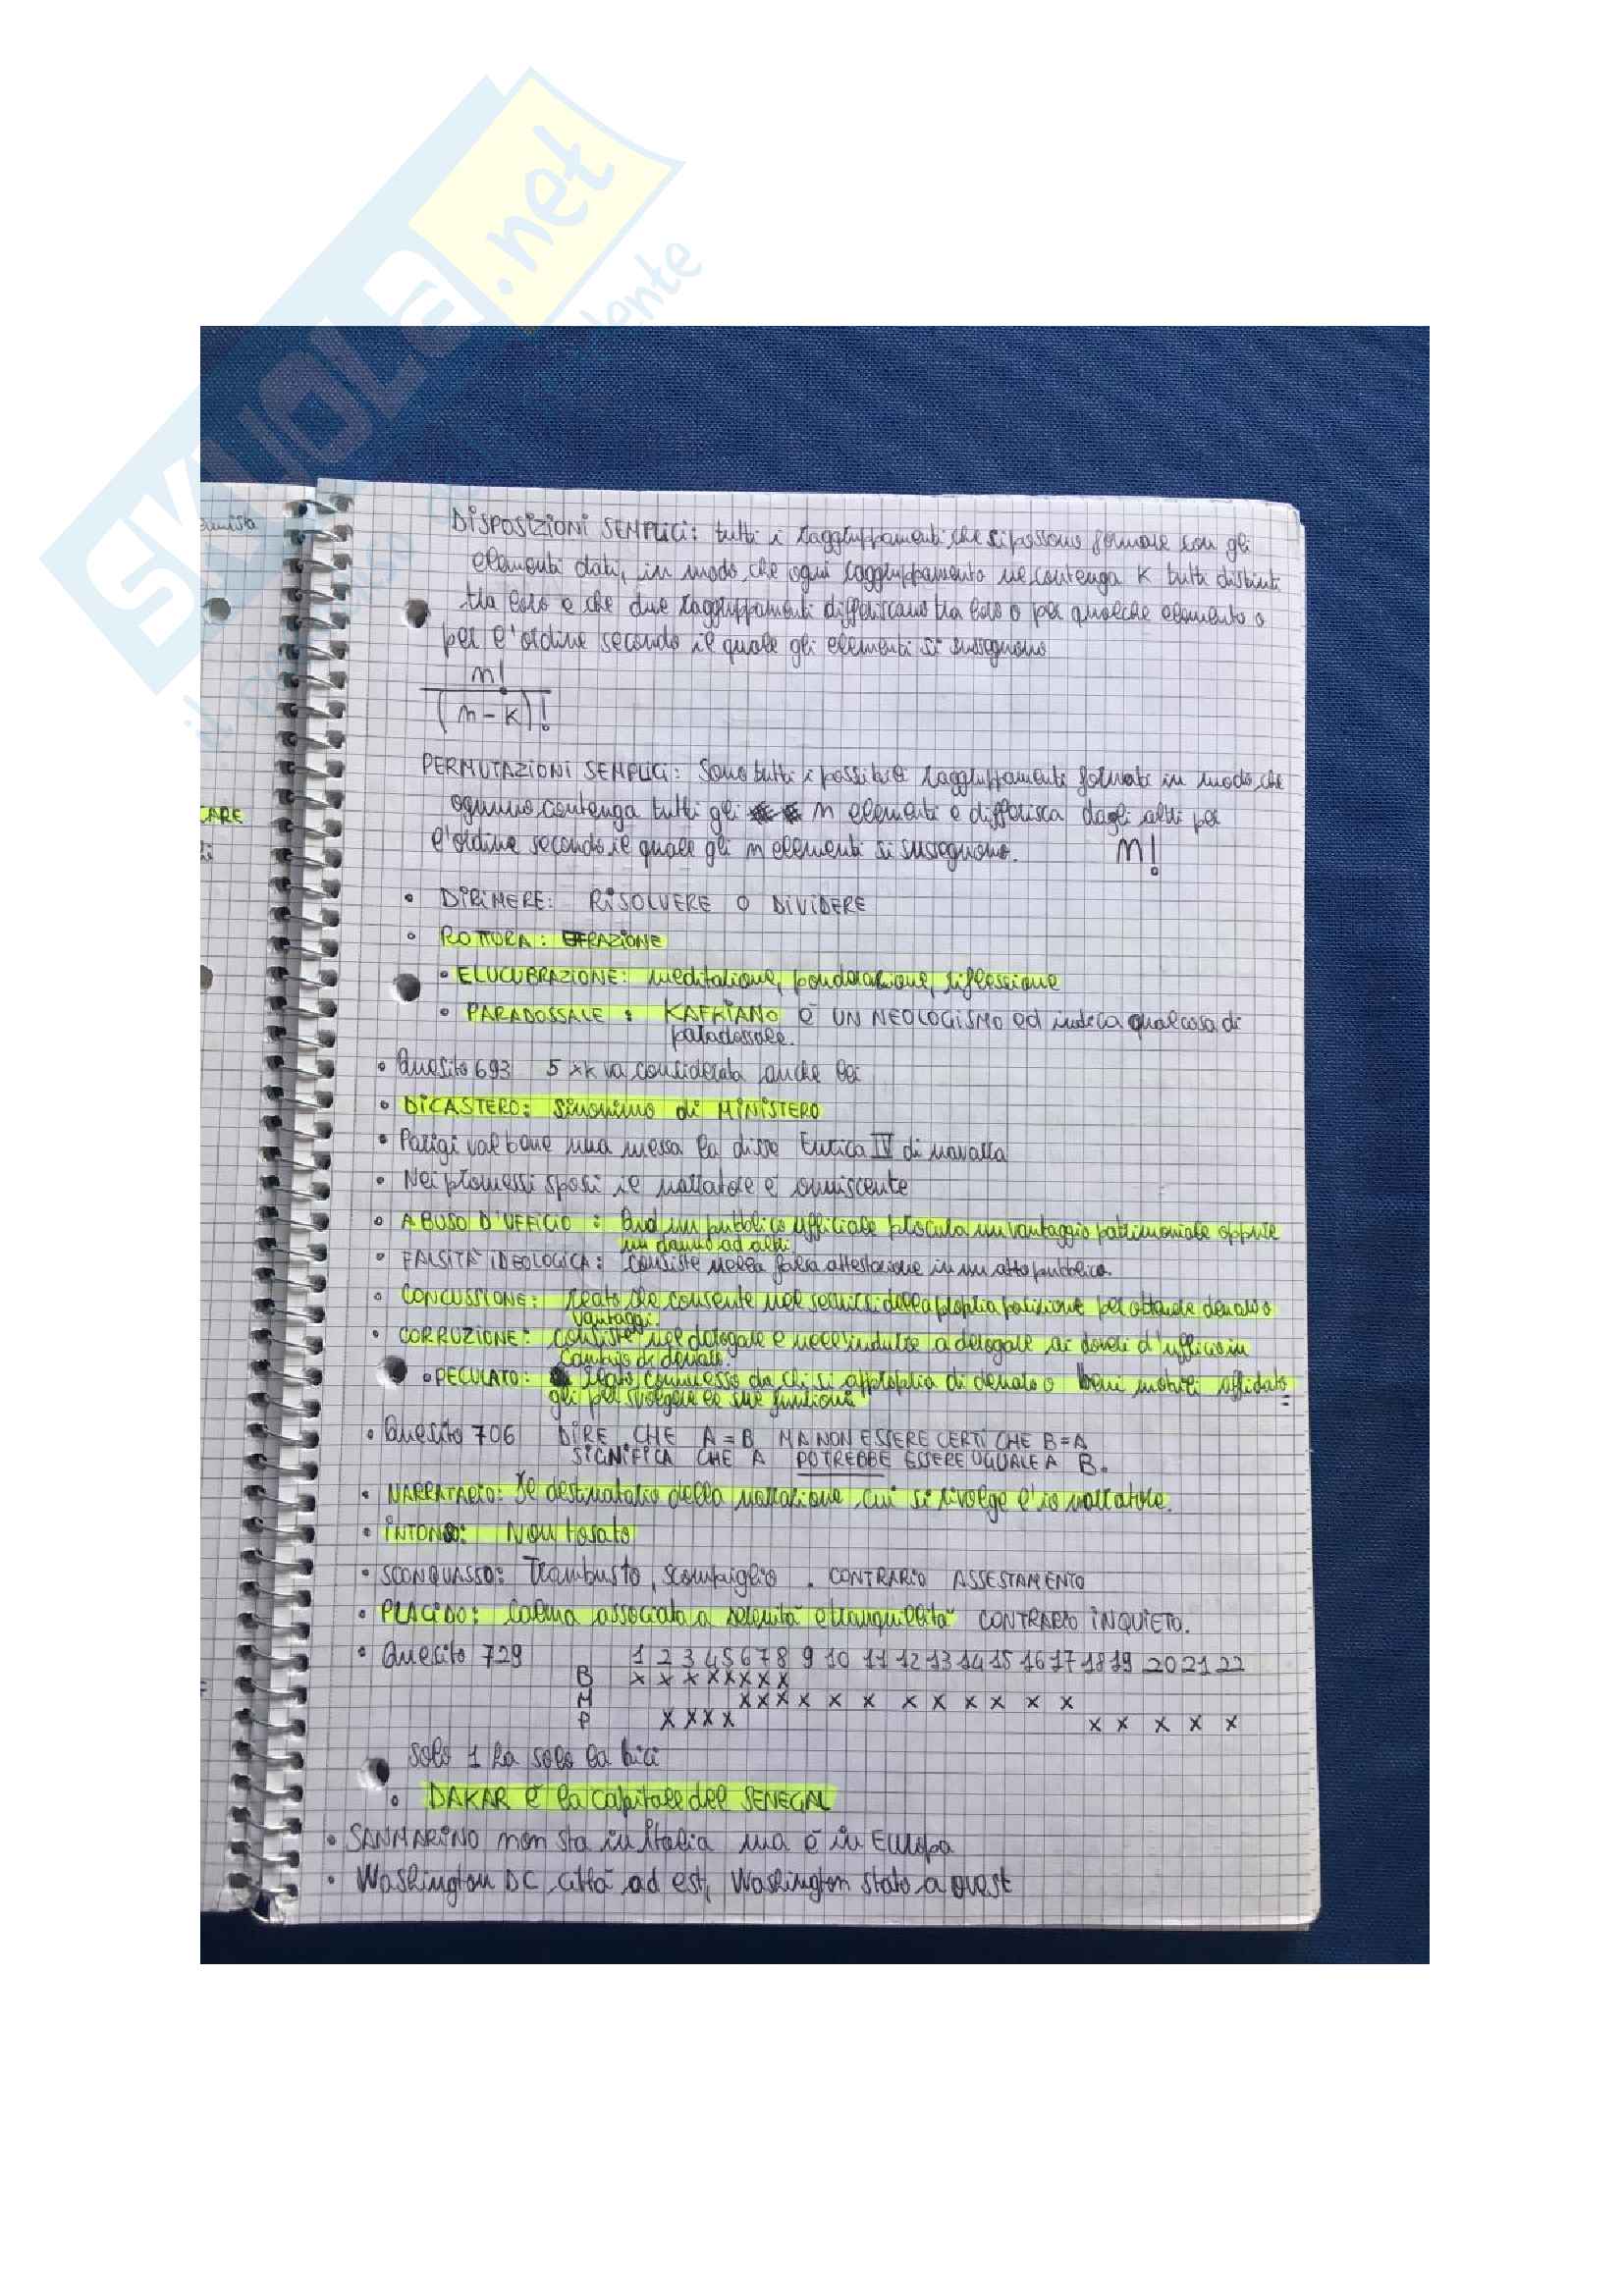 SKUOLA.net
DISPOSIZIONI SEMPLICI: tutti i raggruppamenti che si possono formare con gli
elementi dati, in modo che ogni raggruppamento ne contenga K tutti distinti
tra loro e che due raggruppamenti differiscano tra loro o per qualche elemento o
per l'ordine secondo il quale gli elementi si susseguono
n!
(n-k)!
PERMUTAZIONI SEMPLICI: Sono tutti i possibili raggruppamenti formati in modo che
CARE
ognuno contenga tutti gli n elementi e differisca dagli altri per
l'ordine secondo il quale gli n elementi si susseguono. n!
• DIRIMERE: RISOLVERE O DIVIDERE
• ROTTURA: EFFRAZIONE
• ELUCUBRAZIONE: meditazione, ponderazione, riflessione
• PARADOSSALE: KAFKIANO È UN NEOLOGISMO ed indica qualcosa di
paradossale.
• Quesito 693 5 xk va considerata anche lei
• DICASTERO: sinonimo di MINISTERO
• Parigi val bene una messa la disse Enrico IV di navarra
• Nei promessi sposi il narratore è onniscente
• ABUSO D'UFFICIO: un pubblico ufficiale procura un vantaggio patrimoniale oppure
un danno ad altri
• FALSITÀ IDEOLOGICA: consiste nella falsa attestazione in un atto pubblico.
• CONCUSSIONE: reato che consente nel servirsi della propria posizione per ottenere denaro o
vantaggi.
• CORRUZIONE: consiste nel derogare e nell'indurre a derogare ai doveri d'ufficio in
cambio di denaro.
• PECULATO: reato commesso da chi si appropria di denaro o beni mobili affidato
gli per svolgere le sue funzioni
• Quesito 706 DIRE CHE A=B MA NON ESSERE CERTI CHE B=A
SIGNIFICA CHE A POTREBBE ESSERE UGUALE A B.
• NARRATARIO: Il destinatario della narrazione cui si rivolge l'io narratore.
• INTONSO: Non tosato
• SCONQUASSO: Trambusto, scompiglio. CONTRARIO ASSESTAMENTO
• PLACIDO: Calma associata a serenità e tranquillità CONTRARIO INQUIETO.
• Quesito 729 1 2 3 4 5 6 7 8 9 10 11 12 13 14 15 16 17 18 19 20 21 22
B x x x x x x x x
M x x x x x x x x x x x x
P x x x x x x x x x
Solo 1 ha solo la bici
• DAKAR è la capitale del SENEGAL
• SANMARINO non sta in Italia ma è in Europa
• Washington DC città ad est, Washington stato a ovest